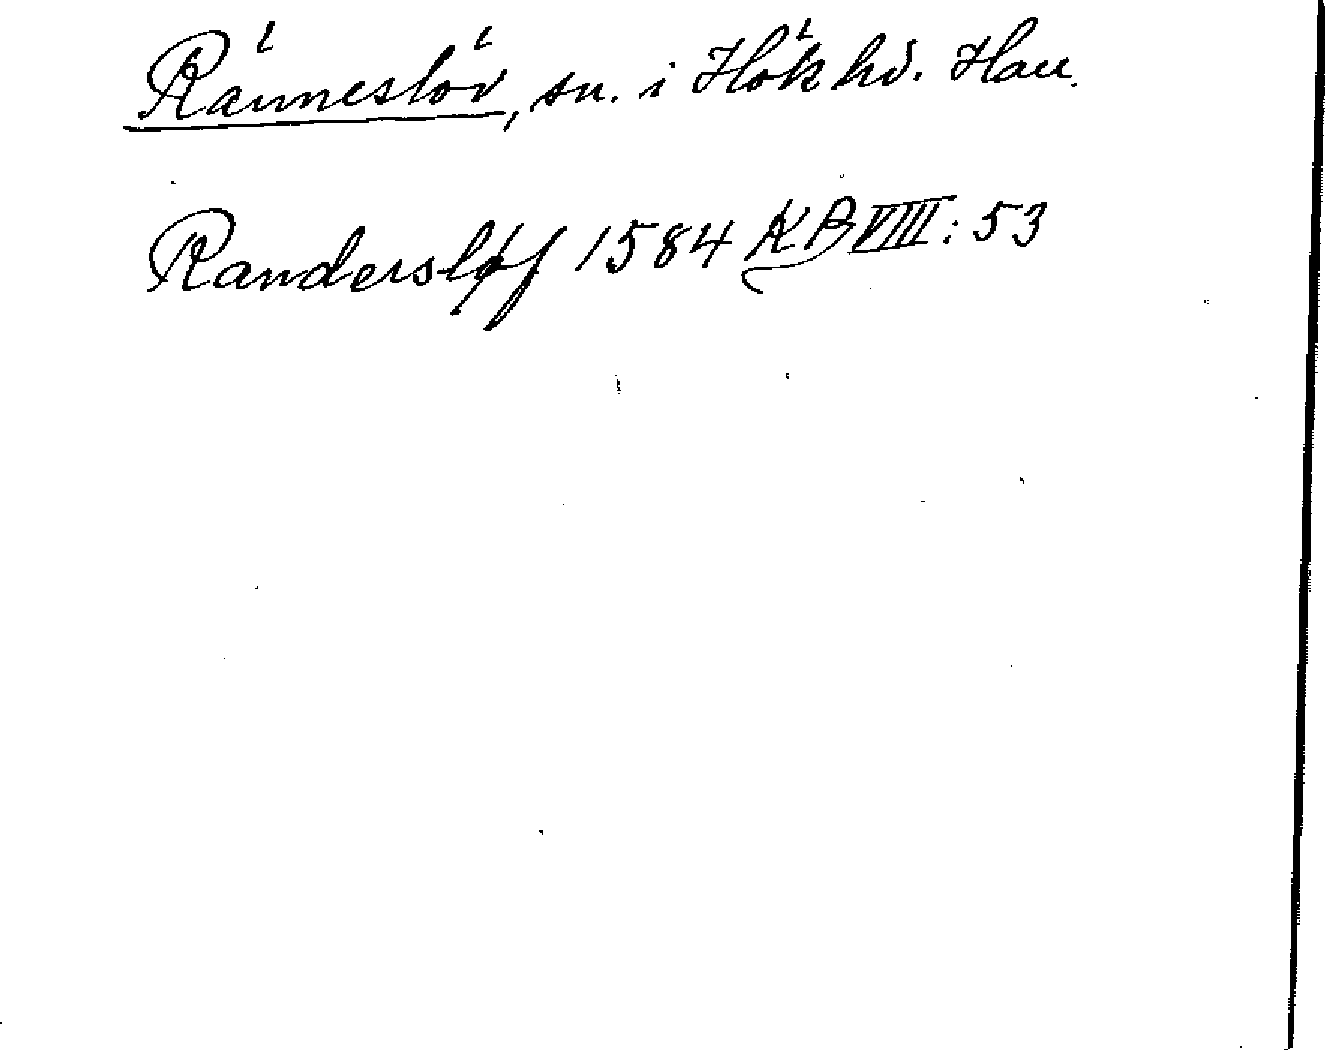 Ränneslöv, sn. i Höks hd. Hall.
Randersløf 1584 KB VIII: 53